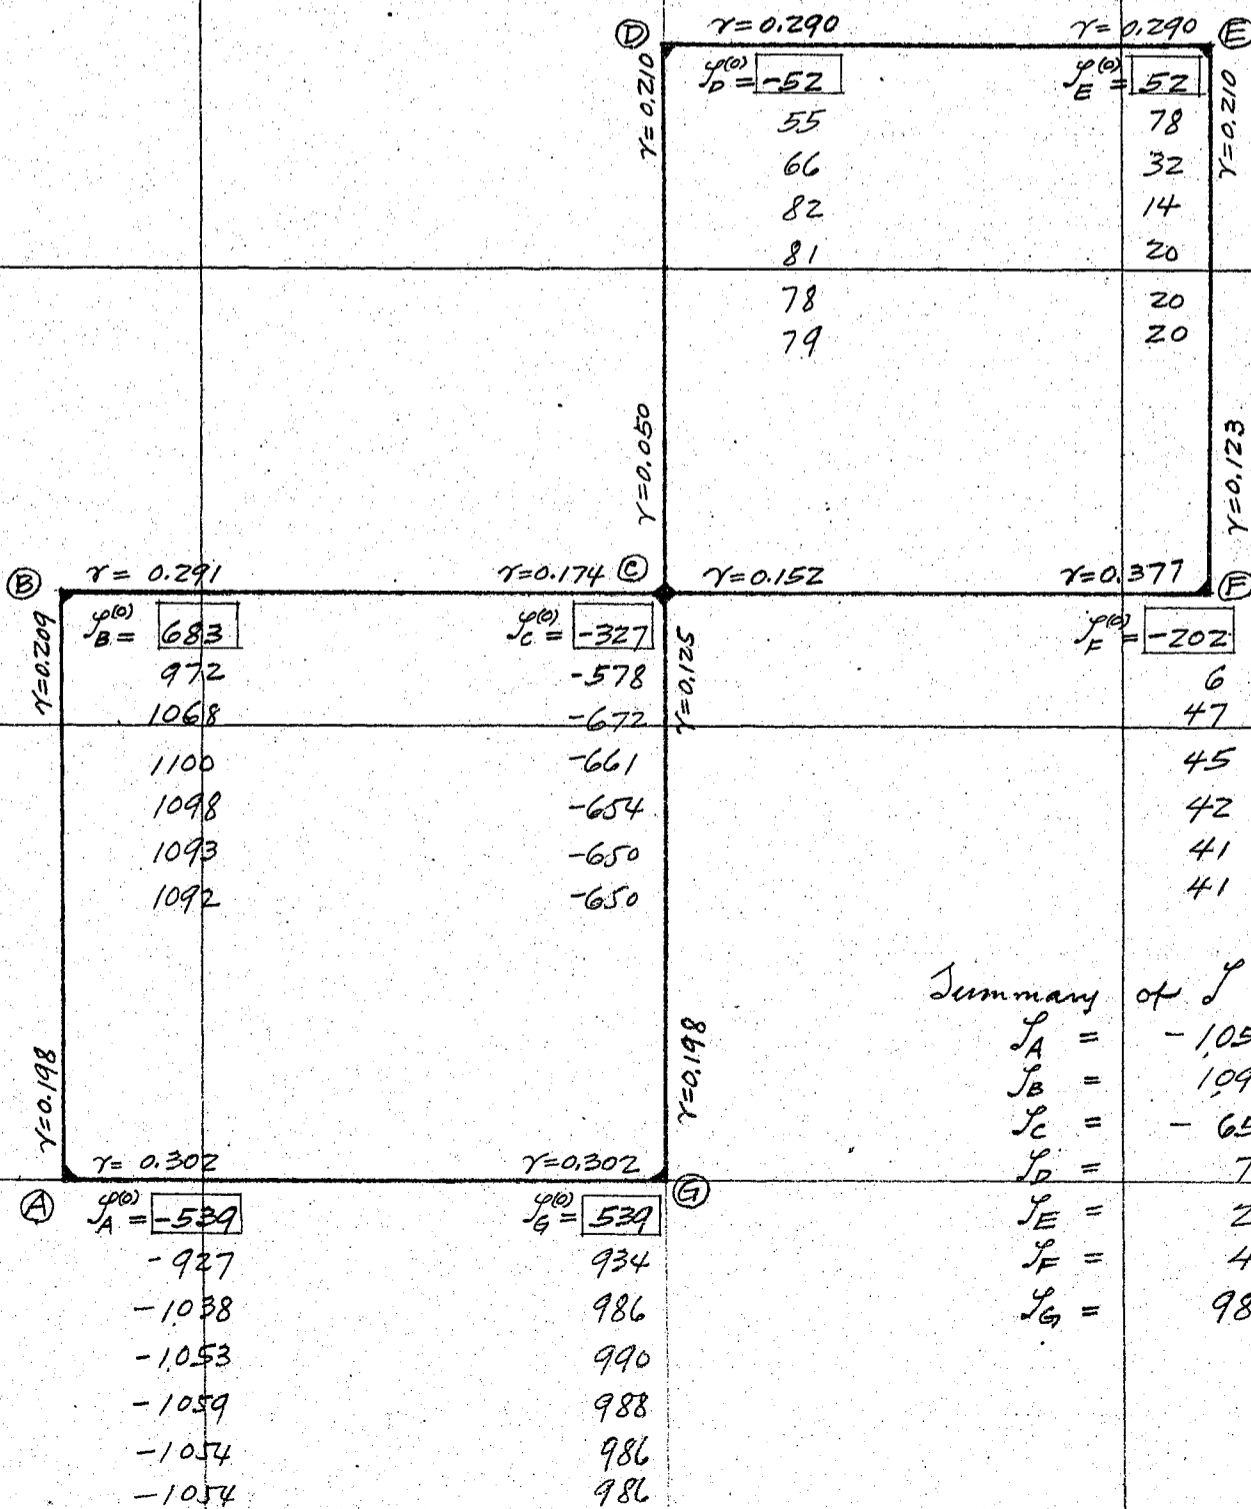 Ⓓ γ=0.290 γ=0.290 Ⓔ
γ=0.210
γ=0.210
𝒮_D^(0) = -52
55
66
82
81
78
79
𝒮_E^(0) = 52
78
32
14
20
20
20
γ=0.050
γ=0.123
Ⓑ γ= 0.291 γ=0.174 Ⓒ γ=0.152 γ=0.377 Ⓕ
γ=0.209
𝒮_B^(0) = 683
972
1068
1100
1098
1093
1092
𝒮_C^(0) = -327
-578
-672
-661
-654
-650
-650
γ=0.125
𝒮_F^(0) = -202
6
47
45
42
41
41
γ=0.198
γ=0.198
Summary of 𝒮
𝒮_A = -105
𝒮_B = 109
𝒮_C = - 65
𝒮_D = 7
𝒮_E = 2
𝒮_F = 4
𝒮_G = 98
γ= 0.302 γ=0.302
Ⓐ Ⓖ
𝒮_A^(0) = -539
-927
-1038
-1053
-1059
-1054
-1054
𝒮_G^(0) = 539
934
986
990
988
986
986